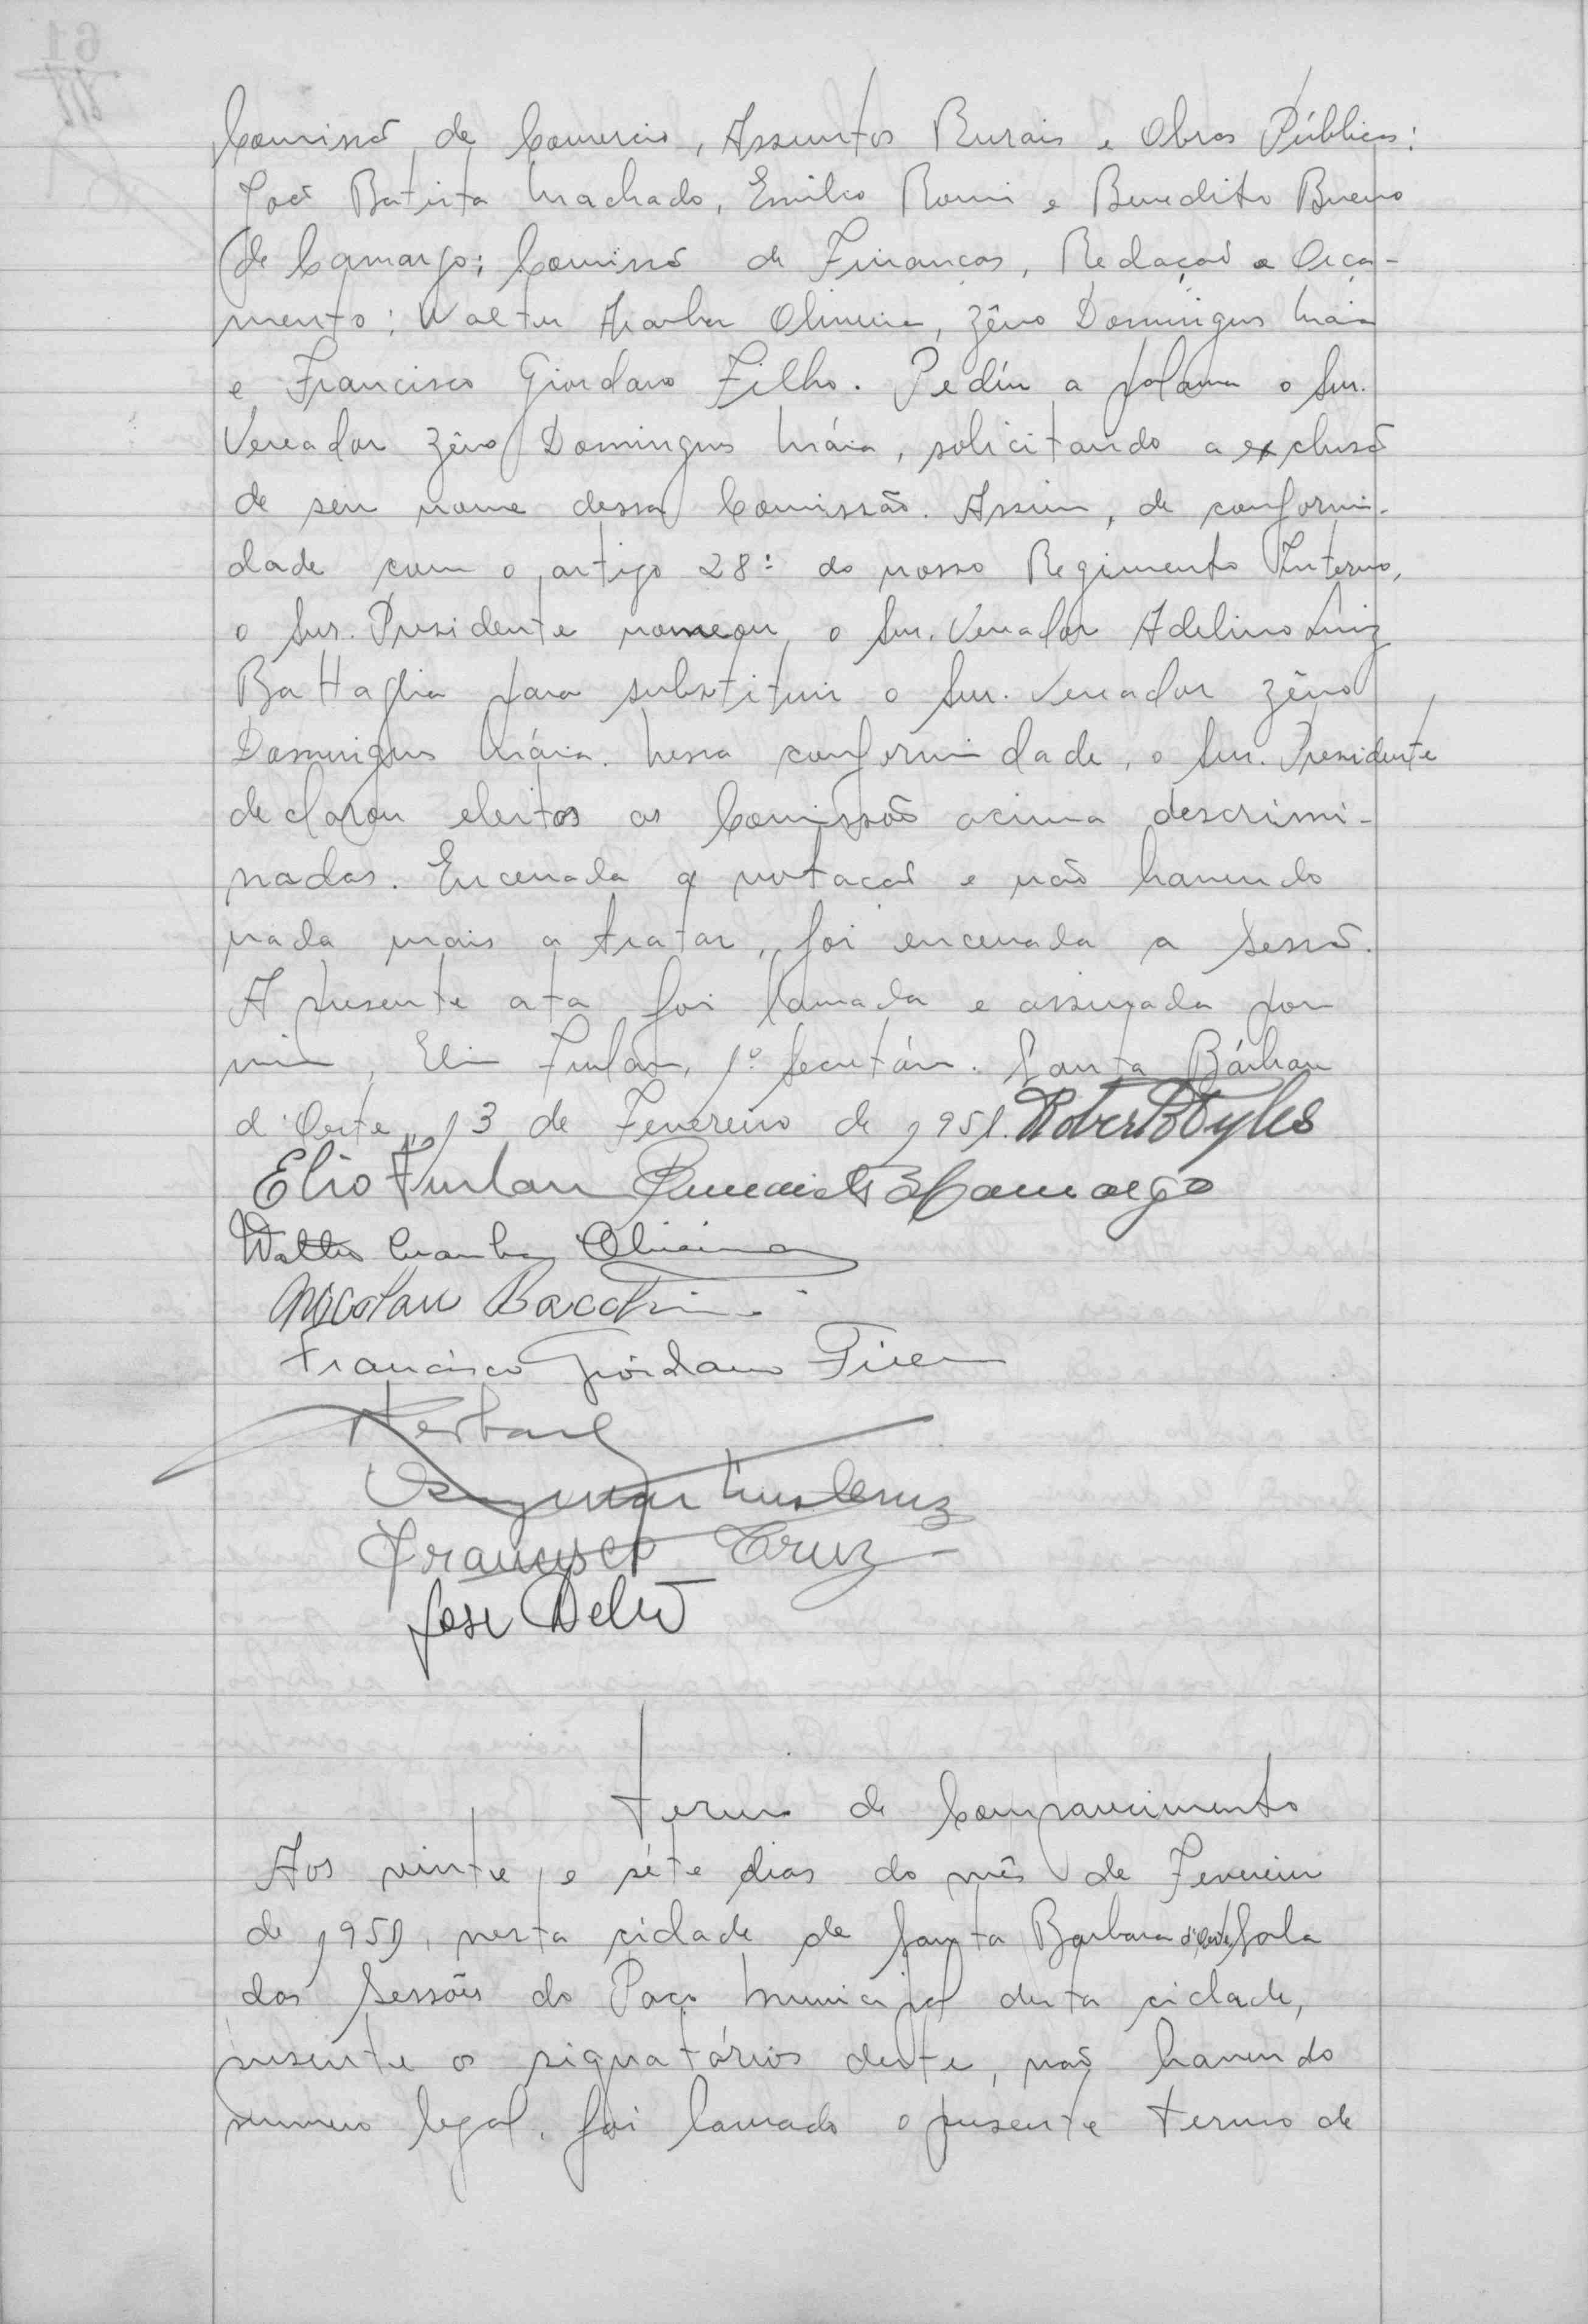 Comissão de Comercio, Assuntos Rurais e Obras Públicas:
José Batista Machado, Emilio Romi e Benedito Bueno
de Camargo; Comissão de Finanças, Redação e Orça-
mento: Walter Oliveira, Zêno Domingues Máia
e Francisco Giordano Filho. Pedíu a palavra o Snr.
Vereador Zêno Domingues Máia, solicitando a exclusão
de seu nome dessa Comissão. Assim, de conformi-
dade com o artigo 28º do nosso Regimento Interno,
o Snr. Presidente nomeou o Snr. Vereador Adelino Luiz
Battaglia para substituir o Snr. Vereador Zêno
Domingues Máia. Nessa conformidade, o Snr. Presidente
declarou eleitos as Comissões acima descrimi-
nadas. Encerrada a votação e não havendo
nada mais a tratar, foi encerrada a Sessão.
A presente ata foi lavrada e assinada por
mim, Elio Furlan, 1º Secretário. Santa Bárbara
d'Oeste, 13 de Fevereiro de 1951.
Elio Furlan Camargo
Walter Oliveira
Nicolau Bacchin
Francisco Giordano Filho
Cruz
Francisco Cruz
José
Termo de Comparecimento
Aos vinte e séte dias do mês de Fevereiro
de 1951, nesta cidade de Santa Barbara d'Oeste, Sala
das Sessões do Paço Municipal desta cidade,
presente os signatários deste, não havendo
numero legal, foi lavrado o presente termo de